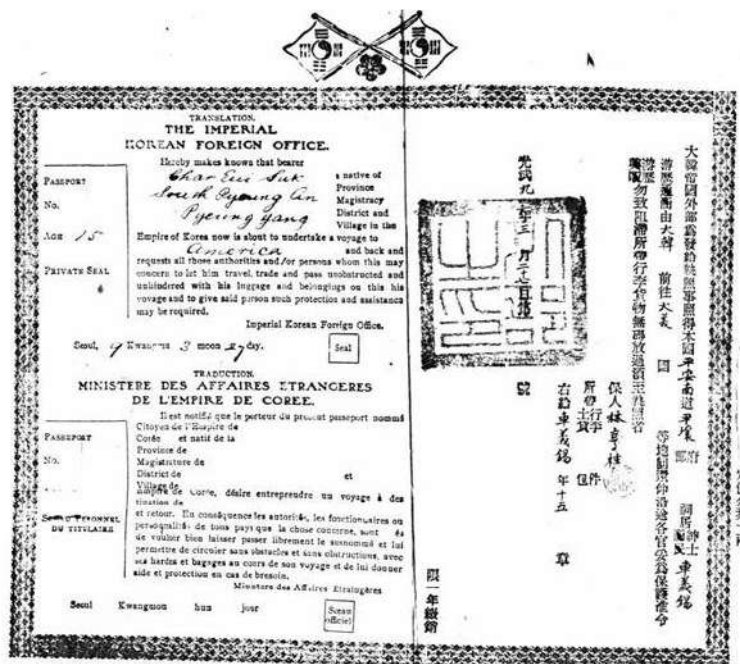 TRANSLATION.
THE IMPERIAL
KOREAN FOREIGN OFFICE.
Hereby makes known that bearer
Char Eui Suk a native of
South Pyeung An Province
Magistracy
Pyeung yang District and
Village in the
PASSPORT
No.
AGE 15
PRIVATE SEAL
Empire of Korea now is about to undertake a voyage to
America and back and
requests all those authorities and/or persons whom this may
concern to let him travel, trade and pass unobstructed and
unhindered with his luggage and belongings on this his
voyage and to give said person such protection and assistance
may be required.
Imperial Korean Foreign Office.
Seoul, 9 Kwangmu 3 moon 27 day.
Seal
TRADUCTION.
MINISTERE DES AFFAIRES ETRANGERES
DE L'EMPIRE DE COREE.
Il est notifié que le porteur du present passeport nommé
Citoyen de l'Empire de
Corée et natif de la
Province de
Magistrature de
District de et
Village de
PASSEPORT
No.
SCEAU PERONNEL
DU TITULAIRE
Empire de Corée, désire entreprendre un voyage à des
tination de
et retour. En conséquence les autorités, les fonctionaires ou
personnalités de tous pays que la chose concerne, sont és
de vouloir bien laisser passer librement le susnommé et lui
permettre de circuler sans obstacles et sans obstructions, avec
ses hardes et bagages au cours de son voyage et de lui donner
aide et protection en cas de bresoin.
Ministere des Affaires Etrangères
Seoul Kwangmon hun jour
Sceau
officiel
大韓帝國外部爲發給執照事照得本國平安南道平壤府郡 洞居紳士商民車義錫
游歷護衛由大韓 前往大美國 等地國仰沿途各官妥爲保護准令
游歷
勿致阻滯所帶行李貨物無碍放過須至執照者
保人林亨柱
所帶行李土貨 件包
右給車義錫 年十五 章
號
光武九年三月二十七日
限一年繳銷